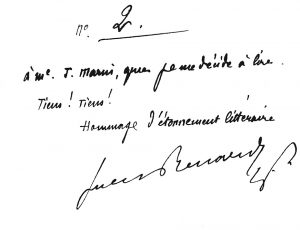 n° 2.
à Me. J. Marni, que je me décide à lire.
Tiens ! Tiens !
Hommage d'étonnement littéraire
Jules Renard